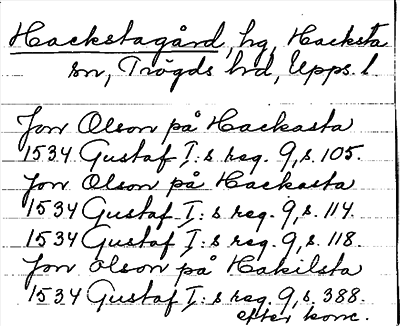 Hackstagård, hg, Hacksta
sn, Trögds hd, Upps. l.
Jon Olson på Hackasta
1534 Gustaf I:s reg. 9, s. 105.
Jon Olson på Hackasta
1534 Gustaf I:s reg. 9, s. 114.
1534 Gustaf I:s reg. 9, s. 118.
Jon Olson på Hakilsta
1534 Gustaf I:s reg. 9, s. 388.
efter konc.